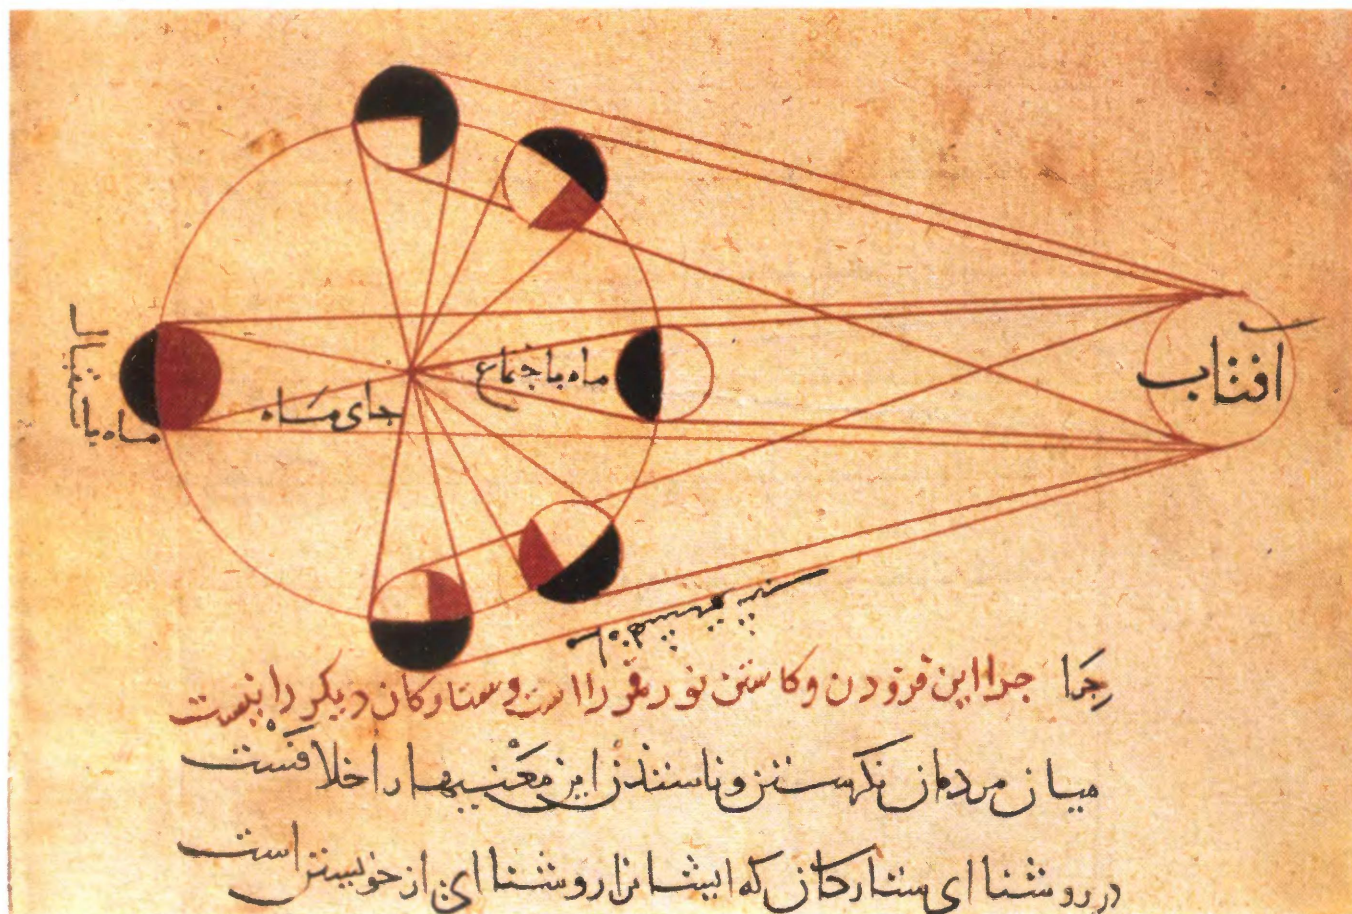 آفتاب
ماه باجتماع
جای ماه
ماه باستقبال
چرا چرا این فزودن و کاستن نور قمر را است و ستارکان دیکر را نیست
میان مردمان نکرستن و تاسندن این معنیها را خلافست
در روشنا ای ستارکان که ایشانرا روشنا ای از خویشتن است